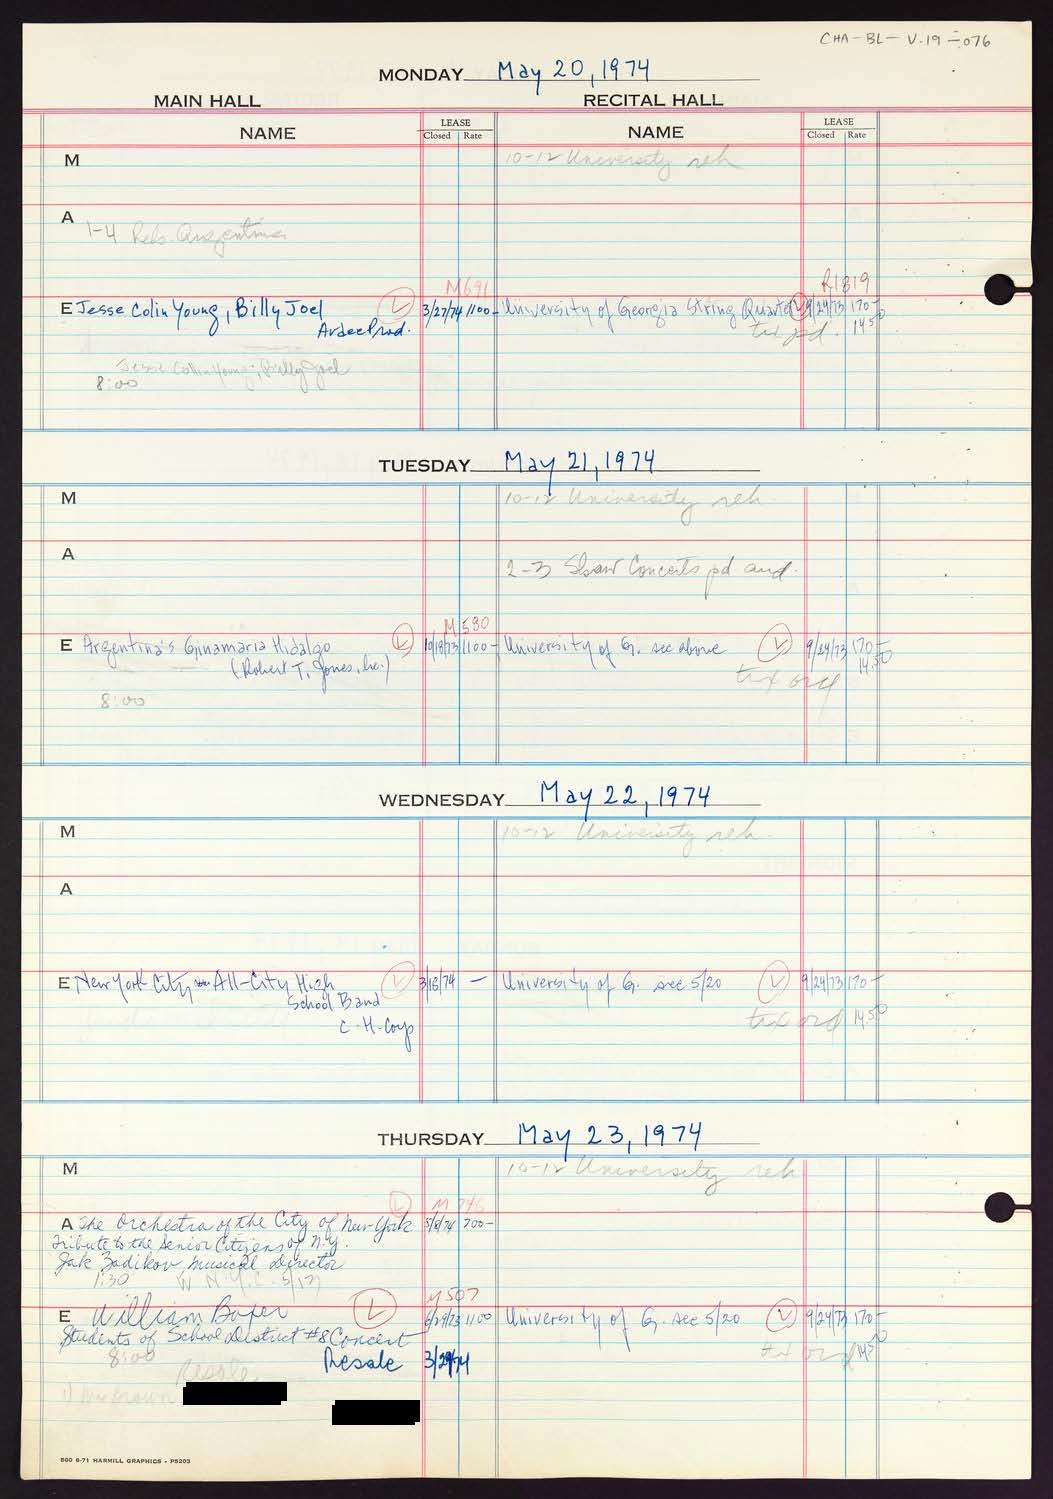 CHA-BL-V.19-076
MONDAY May 20, 1974
MAIN HALL RECITAL HALL
NAME LEASE Closed Rate NAME LEASE Closed Rate
M 10-12 University reh
A 1-4 Reh. Argentina
M691 R1819
E Jesse Colin Young, Billy Joel L 3/27/74 1100- University of Georgia String Quartet L 9/24/73 170-
Ardee Prod. tix pd. 14.50
Jesse Colin Young, Billy Joel
8:00
TUESDAY May 21, 1974
M 10-12 University reh.
A 2-3 Shaw Concerts pd aud.
M580
E Argentina's Ginamaria Hidalgo L 10/19/73 1100- University of G. see above L 9/24/73 170-
(Robert T. Jones, Inc.) tix ord 14.50
8:00
WEDNESDAY May 22, 1974
M 10-12 University reh.
A
E New York City All-City High L 3/18/74 - University of G. see 5/20 L 9/24/73 170-
School Band tix ord 14.50
C-H-Corp
THURSDAY May 23, 1974
M 10-12 University reh
L M746
A The Orchestra of the City of New York 5/8/74 700-
Tribute to the Senior Citizens of N.Y.
Musical Director
1:30 W N.Y.C. 5/17
M507
E William L 6/29/73 1100 University of G. see 5/20 L 9/24/73 170-
Students of School District #8 Concert tix ord 14.50
8:00 Resale 3/29/74
Resale
Brown
500 6-71 HARMILL GRAPHICS - P5203